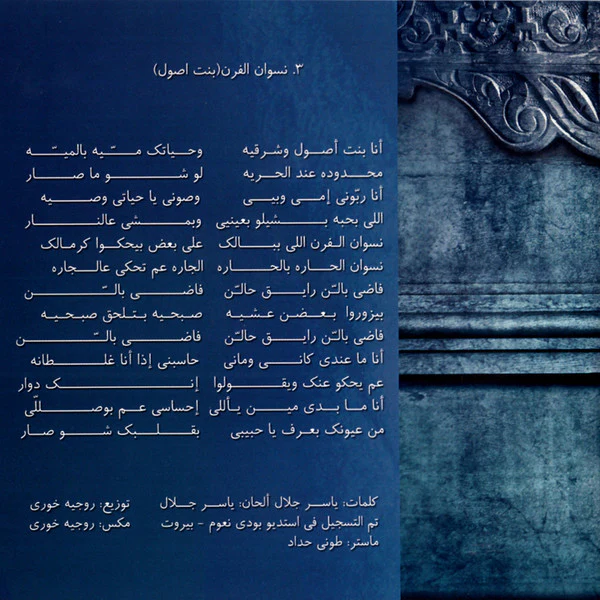 ٣. نسوان الفرن(بنت اصول)
أنا بنت أصول وشرقيه وحياتك ميّه بالميّه
محدوده عند الحريه لو شو ما صار
أنا ربّوني إمي وبيي وصوني يا حياتي وصيه
اللي بحبه بشيلو بعينيي وبمشي عالنار
نسوان الفرن اللي ببالك على بعض بيحكوا كرمالك
نسوان الحاره بالحاره الجاره عم تحكي عالجاره
فاضي بالن رايق حالن فاضي بالن
بيزوروا بعضن عشيه صبحيه بتلحق صبحيه
فاضي بالن رايق حالن فاضي بالن
أنا ما عندي كاني وماني حاسبني إذا أنا غلطانه
عم يحكو عنك ويقولوا إنك دوار
أنا ما بدي مين يأللي إحساسي عم بوصللّي
من عيونك بعرف يا حبيبي بقلبك شو صار
كلمات: ياسر جلال ألحان: ياسر جلال توزيع: روجيه خوري
تم التسجيل في استديو بودي نعوم - بيروت مكس: روجيه خوري
ماستر: طوني حداد